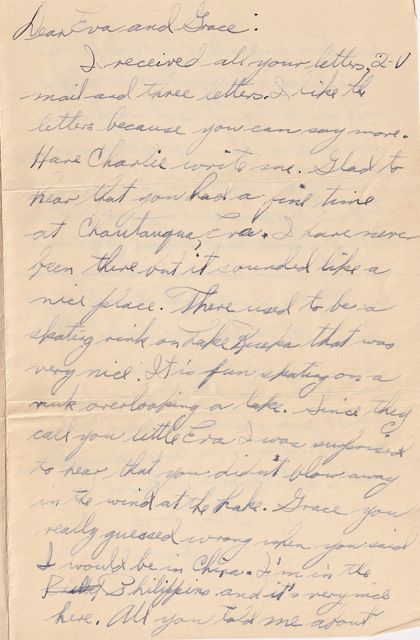 Dear Eva and Grace:
I received all your letters, 2-V
mail and three letters. I like the
letters because you can say more.
Have Charlie write me. Glad to
hear that you had a fine time
at Chautauqua, Eva. I have never
been there but it sounded like a
nice place. There used to be a
skating rink on Lake Keuka that was
very nice. It is fun skating on a
rink overlooking a lake. Since they
call you little Eva I was surprised
to hear that you didn't blow away
in the wind at the lake. Grace you
really guessed wrong when you said
I would be in China. I'm in the
Philippins and it's very nice
here. All you told me about